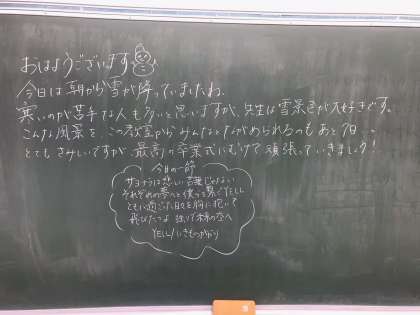 おはようございます
今日は朝から雪が降っていましたね。
寒いのが苦手な人も多いと思いますが、先生は雪景色が大好きです。
こんな風景を、この教室からみんなとながめられるのもあと7日...
とてもさみしいですが、最高の卒業式にむけて頑張っていきましょう!
今日の一節
サヨナラは悲しい言葉じゃない
それぞれの夢へと僕らを繋ぐYELL
ともに過ごした日々を胸に抱いて
飛び立つよ 独りで未来の空へ
YELL/いきものがかり